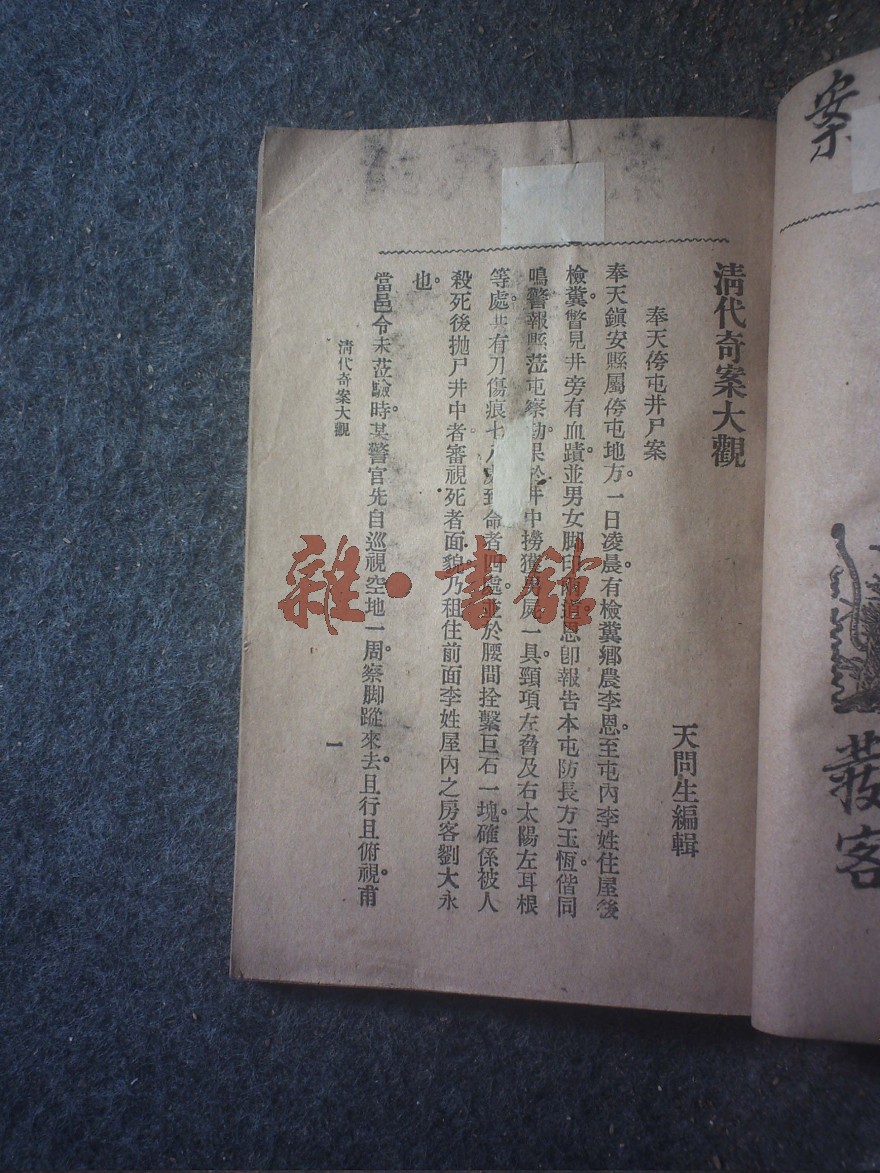 案
發客
清代奇案大觀
天問生編輯
奉天侉屯井尸案
奉天鎭安縣屬侉屯地方。一日凌晨。有檢糞鄉農李恩。至屯內李姓住屋後
檢糞。瞥見井旁有血蹟並男女脚印兩道。恩卽報告本屯防長方玉恆。偕同
鳴警報縣。蒞屯察勘。果於井中撈獲男屍一具。頸項左脅及右太陽左耳根
等處。共有刀傷痕七八處。致命者四處。並於腰間拴繫巨石一塊。確係被人
殺死後拋尸井中者。審視死者面貌。乃租住前面李姓屋內之房客劉大永
也。
當邑令未蒞驗時。某警官先自巡視空地一周。察脚蹤來去。且行且俯視。甫
清代奇案大觀
一
雜·書館